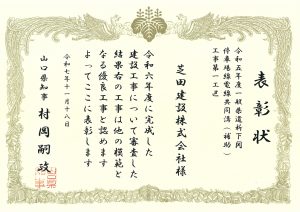 表彰状
令和五年度一般県道新下関
停車場線電線共同溝(補助)
工事第一工区
芝田建設株式会社様
令和六年度に完成した
建設工事について審査した
結果右の工事は他の模範と
なる優良工事と認めます
よってここに表彰します
令和七年十一月十八日
山口県知事 村岡嗣政